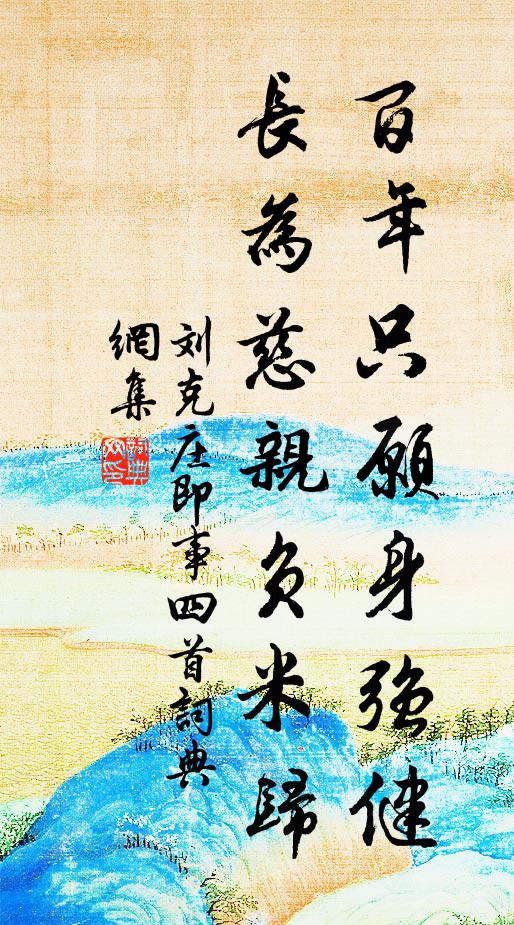 百年只願身強健
長為慈親負米歸
刘克庄即事四首詞典
網集